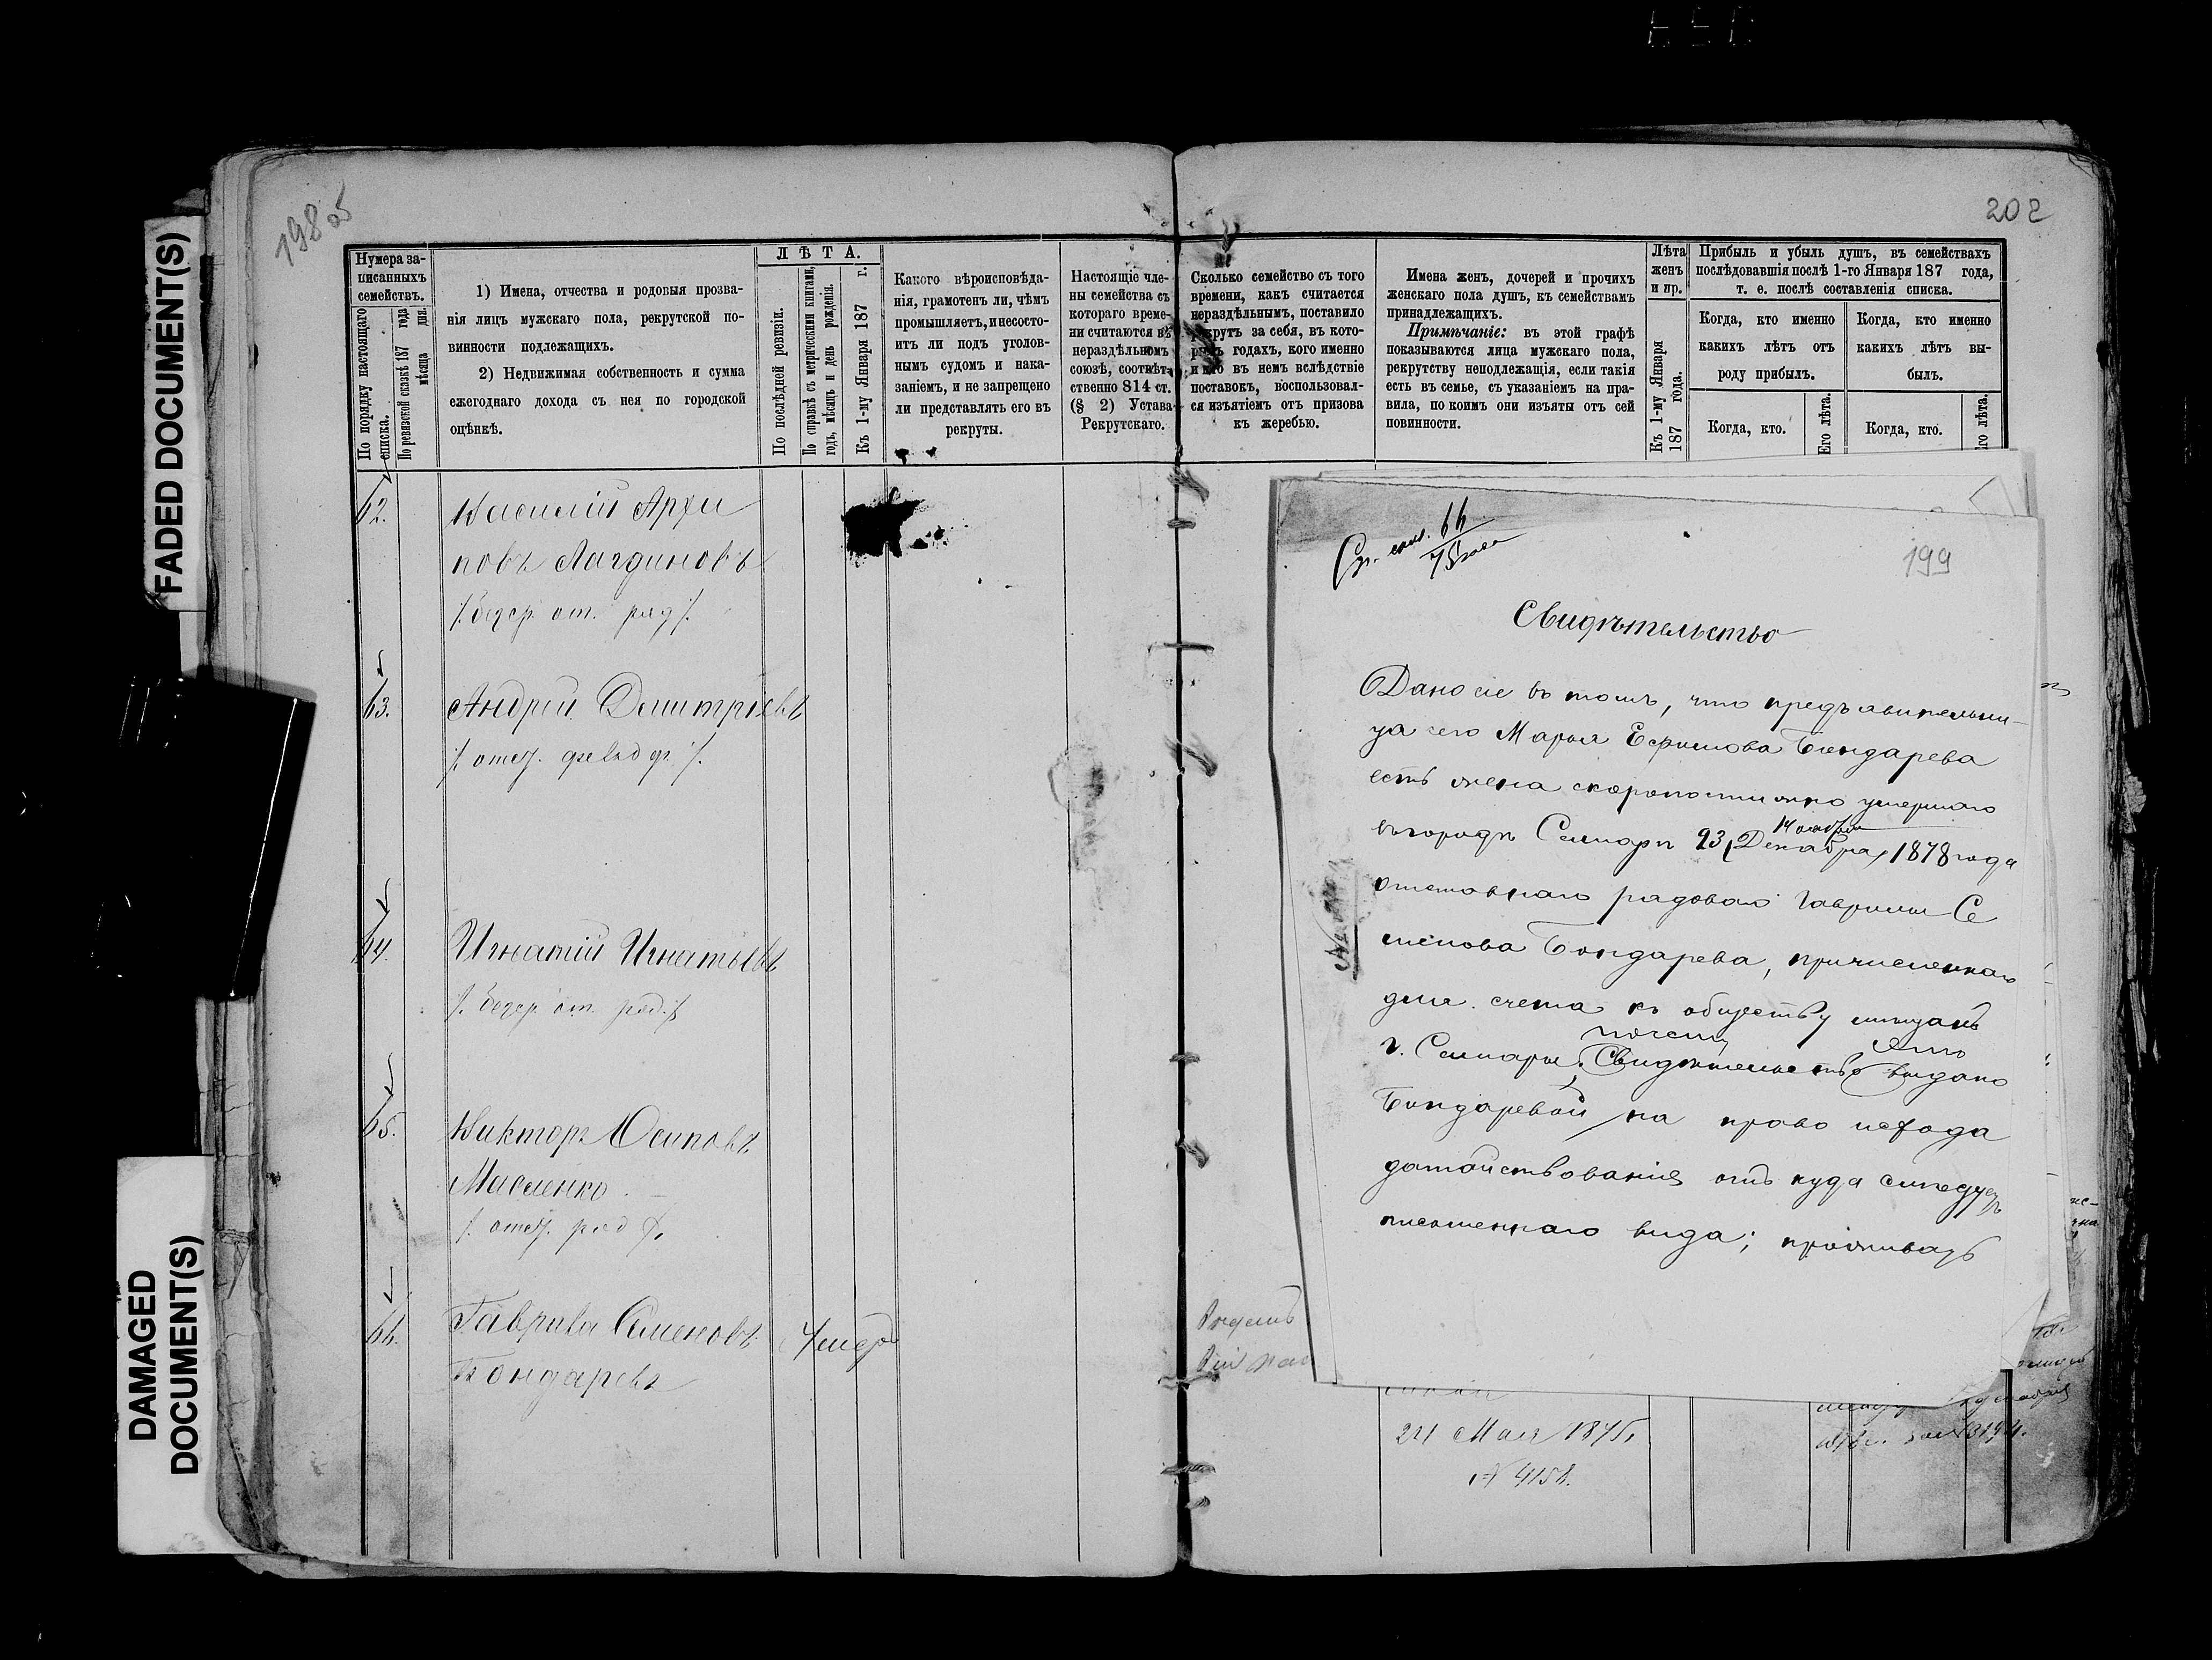 FADED DOCUMENT(S)
DAMAGED
DOCUMENT(S)
198 об
202
Нумера за-
писанныхъ
семействъ.
По порядку настоящаго
списка.
По ревизской сказкѣ 187 года
мѣсяца дня.
1) Имена, отчества и родовыя прозва-
нія лицъ мужскаго пола, рекрутской по-
винности подлежащихъ.
2) Недвижимая собственность и сумма
ежегоднаго дохода съ нея по городской
оцѣнкѣ.
ЛѢТА.
По послѣдней ревизіи.
По справкѣ съ метрическими книгами,
годъ, мѣсяцъ и день рожденія.
Къ 1-му Января 187 г.
Какого вѣроисповѣда-
нія, грамотенъ ли, чѣмъ
промышляетъ, и несосто-
итъ ли подъ уголов-
нымъ судомъ и нака-
заніемъ, и не запрещено
ли представлять его въ
рекруты.
Настоящіе чле-
ны семейства съ
котораго време-
ни считаются въ
нераздѣльномъ
союзѣ, соотвѣт-
ственно 814 ст.
(§ 2) Устава
Рекрутскаго.
Сколько семейство съ того
времени, какъ считается
нераздѣльнымъ, поставило
рекрутъ за себя, въ кото-
рыхъ годахъ, кого именно
и кто въ немъ вслѣдствіе
поставокъ, воспользовал-
ся изъятіемъ отъ призова
къ жеребью.
Имена женъ, дочерей и прочихъ
женскаго пола душъ, къ семействамъ
принадлежащихъ.
Примѣчаніе: въ этой графѣ
показываются лица мужскаго пола,
рекрутству неподлежащія, если такія
есть въ семьѣ, съ указаніемъ на пра-
вила, по коимъ они изъяты отъ сей
повинности.
Лѣта
женъ
и пр.
Къ 1-му Января
187 года.
Прибыль и убыль душъ, въ семействахъ
послѣдовавшія послѣ 1-го Января 187 года,
т. е. послѣ составленія списка.
Когда, кто именно
какихъ лѣтъ отъ
роду прибылъ.
Когда, кто именно
какихъ лѣтъ вы-
былъ.
Когда, кто.
Его лѣта.
Когда, кто.
Его лѣта.
62. Василій Архи
повъ Лагдиновъ
/. безср. от. ряд /.
63. Андрей Дмитріевъ
/. отст. фельдф. /.
64. Игнатій Игнатьевъ
/. безср. от. ряд. /.
65. Викторъ Осиповъ
Масленко
/. отст. ряд /.
66. Гаврила Семеновъ Умеръ
Бондаревъ
66
199
Свидѣтельство
Дано сіе въ томъ, что предъявительни-
ца сего Марья Ефимова Бондарева
есть жена скоропостижно умершаго
14 октября
въ городѣ Самарѣ 23 Декабря 1878 года
отставнаго рядоваго Гаврилы Се
менова Бондарева, причисленнаго
для счета къ обществу мѣщанъ
почему
г. Самары, Свидѣтельство выдано
Бондаревой на право исхода
датайствованія отъ куда слѣдуетъ
письменнаго вида; проживать
24 Мая 1875,
№ 4158.